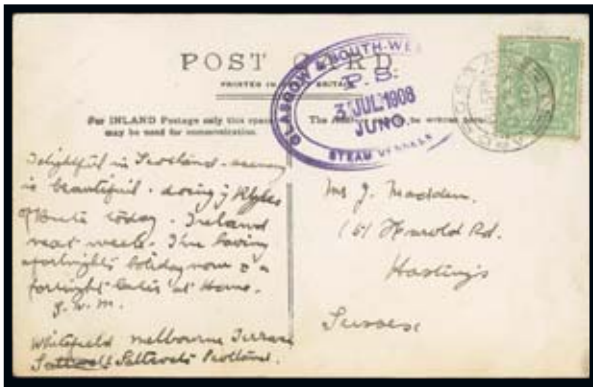 POST CARD
PRINTED IN BRITAIN
For INLAND Postage only this space
may be used for communication.
The
be written here
GLASGOW & SOUTH-WE
P.S.
3 JUL 1908
JUNO.
STEAM VESSELS
Delightful in Scotland - scenery
is beautiful. doing ye Kyles
of Bute today. Ireland
next week. I'm having
a fortnight's holiday now & a
fortnight later at Home.
J. W. M.
Whitefield Melbourne Terrace
Saltcoats Scotland.
Mr J. Madden.
161 Harold Rd.
Hastings
Sussex